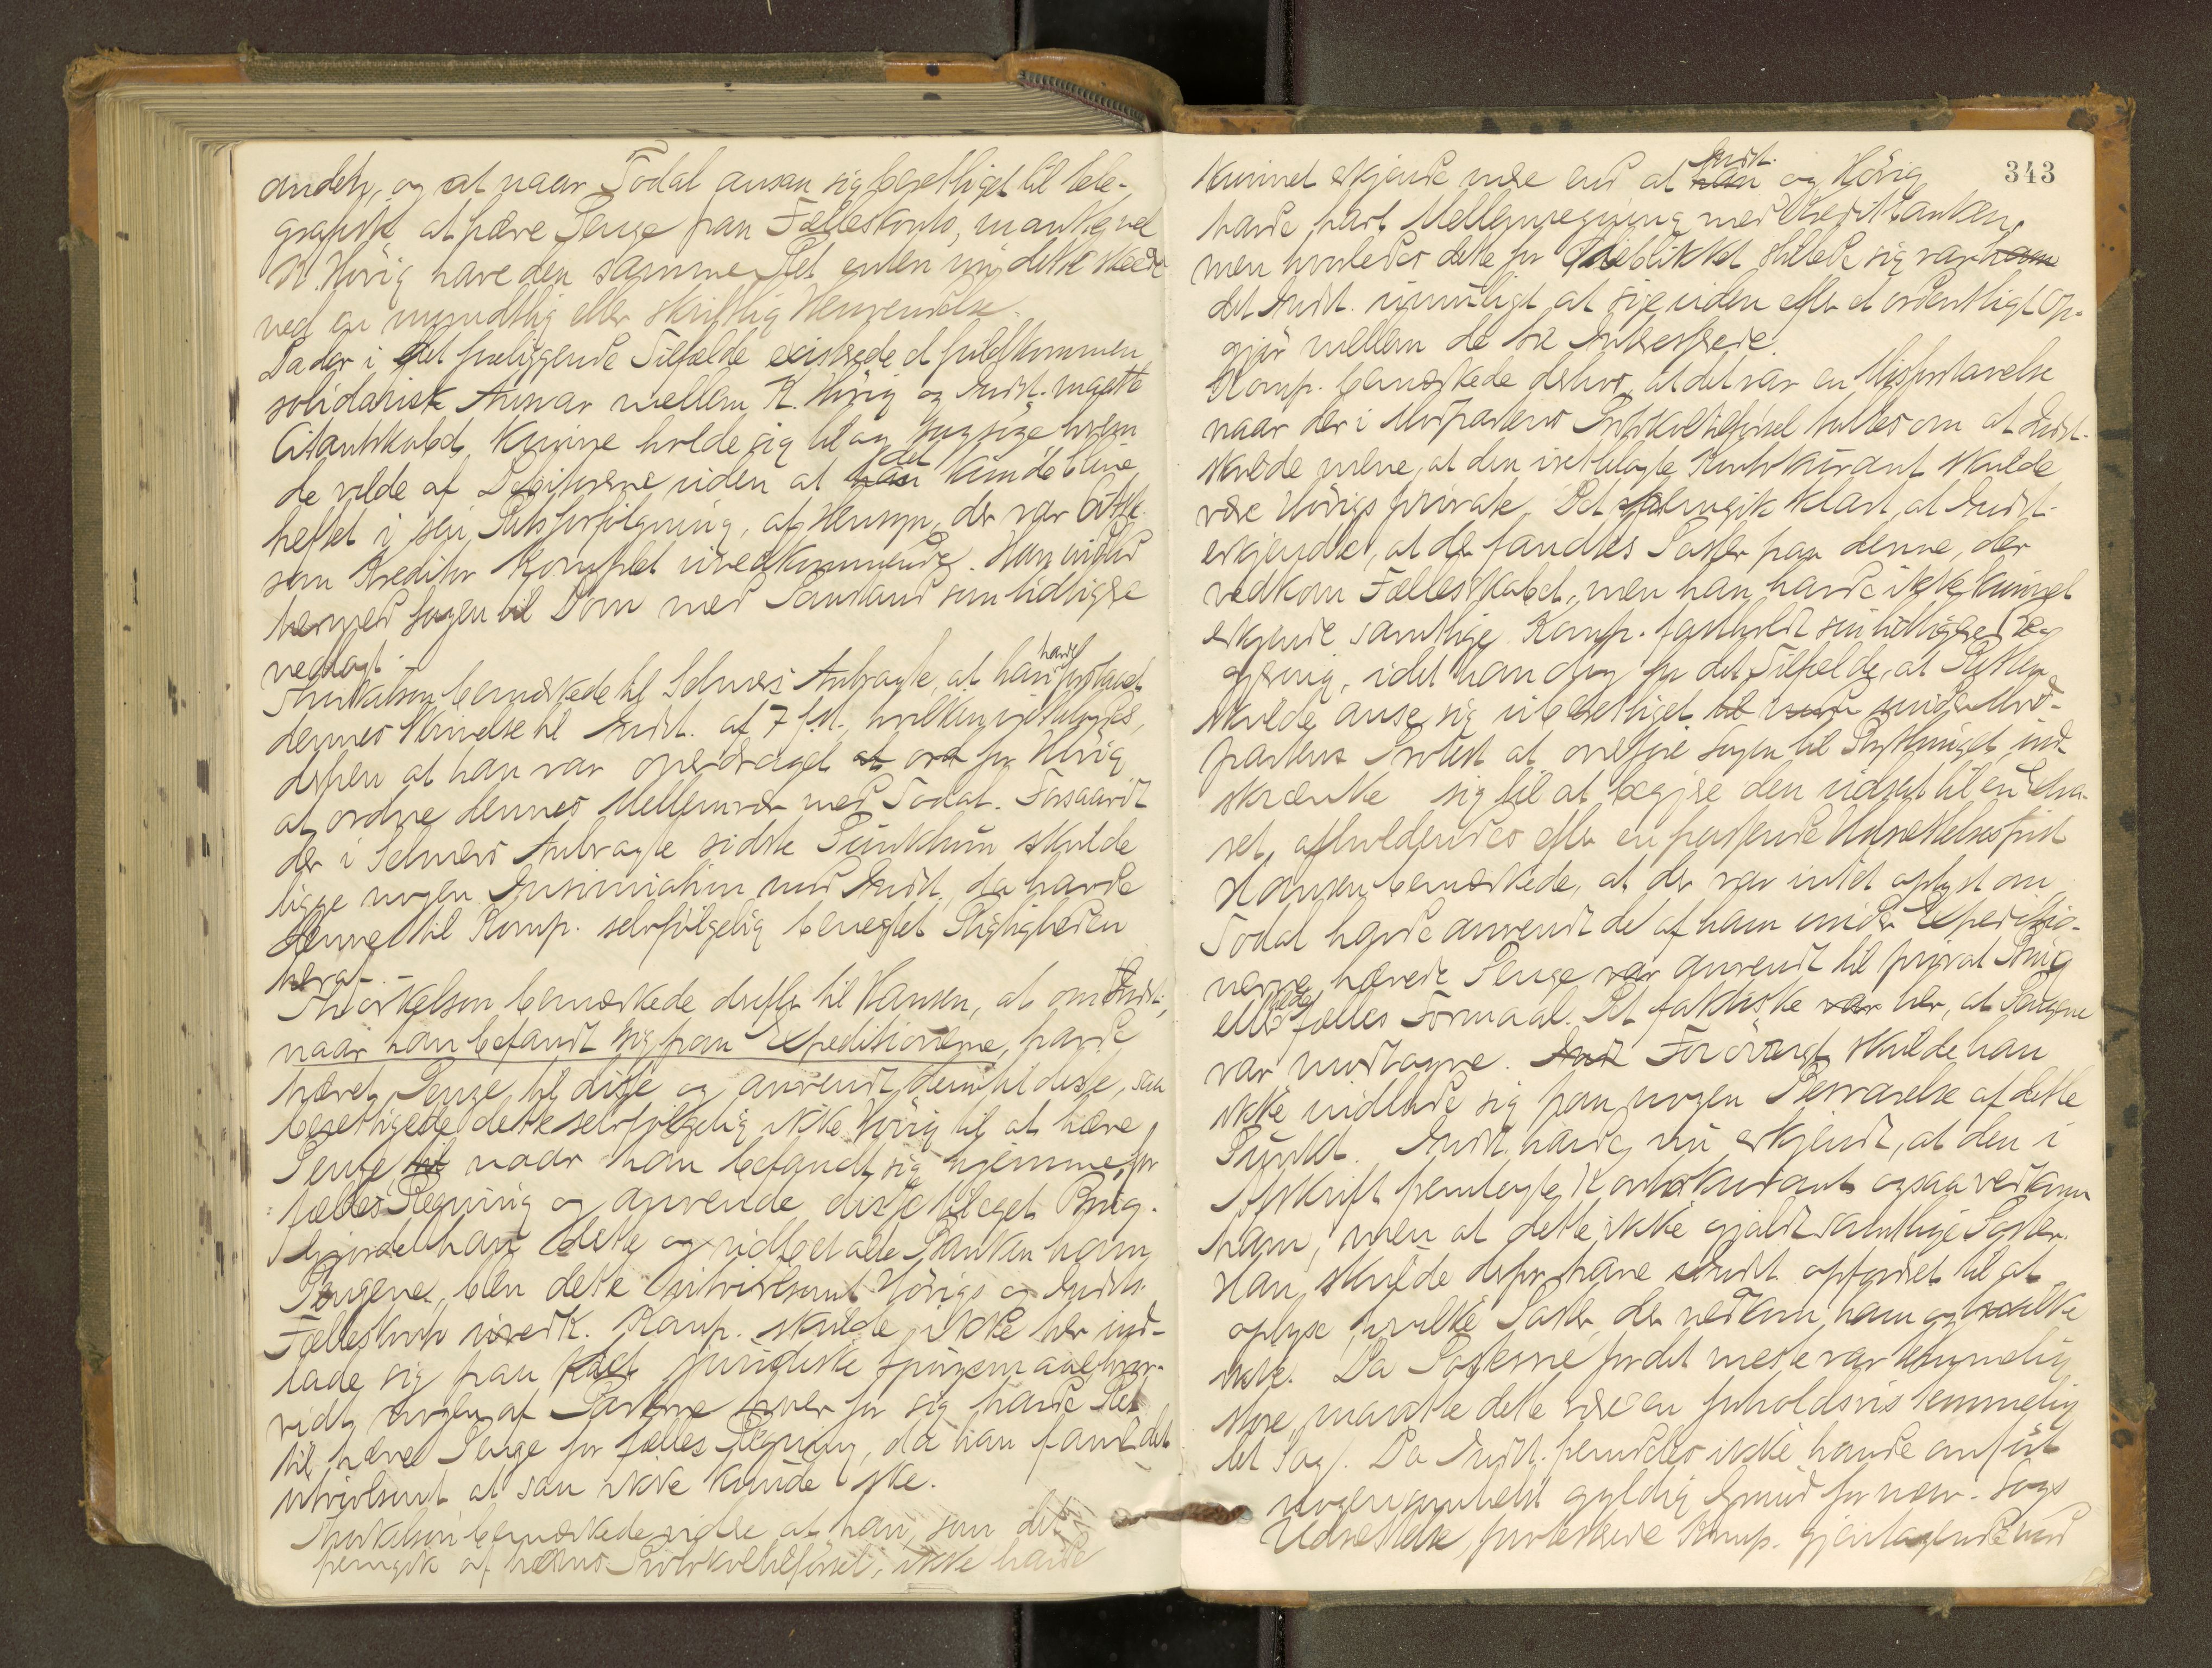 andet, og at naar Todal ansaa sig berettiget til tele-
grafisk at hæve Penge paa Felleskonto, maatte vel
K. Hövig have den samme Ret enten nu dette skede
ved en mundtlig eller skriftlig Henvendelse.
Da der i det foreliggende Tilfælde existerede et fuldkommen
solidarisk Ansvar mellem K. Hövig og Indst. maatte
Citantskabet kunne holde sig til og sagsöge hvem
de vilde af Debitorerne uden at det kunde blive
heftet i sin Retsforfölgning, af Hensyn, der var Citsk.
som Kreditor komplet uvedkommende. Han indlod
hermed Sagen til Dom med Paastand som tidligere
nedlagt.-
Thorkelsen bemærkede til Selmers Anbragte, at han havde forstaaet
dennes Skrivelse til Indst. af 7 f.M. hvilken
derhen at han var overdraget at ord for Hövig
at ordne dennes Mellemvær med Todal. Forsaavidt
der i Selmers Anbragte sidste Punktum skulde
ligge nogen Insinuation mod Indst, da havde
denne til Komp. selvfölgelig benegtet Rigtigheden
heraf.-
Thorkelsen bemærkede derefter til Hansen, at om Indst.,
naar han befandt sig paa Expeditionerne, havde
hævet Penge til disse og anvendt dem til disse, saa
berettigede dette selvfölgelig ikke Hövig til at hæve
Penge naar han befandt sig hjemme, for
fælles Regning og anvende disse til eget Brug.
Gjorde han dette og udbetalte Banken ham
Pengene, blev dette utvivlsomt Hövigs og Indst.
Felleskonto uvedk. Komp. skulde ikke her ind-
lade sig paa det juridiske Spörgsmaal hvor-
vidt nogen af Parterne hver for sig havde Ret
til hæve Penge for fælles Regning, da han fandt det
utvivlsomt at saa ikke kunde ske.
Thorkelsen bemærkede videre at han, som det
fremgik af hans Protokoltilförsel, ikke havde
343
kunnet erkjende mere end at Indst. og Hövig
havde havt Mellemregning med Kreditbanken,
men hvorledes dette for Öieblikket stillede sig var
det Indst. umuligt at sige uden efter et ordentligt Op-
gjör mellem de tre Interesserede.
Komp. bemærkede derhos, at det var en Misforstaaelse
naar der i Modpartens Protokoltilförsel tales om at Indst.
skulde mene, at den iretlagte Kontokurant skulde
være Hövigs private. Det fremgik klart, at Indst.
erkjendte, at der fandtes Poster paa denne, der
vedkom Fellesskabet, men han havde ikke kunnet
erkjende samtlige. Komp. fastholdt sin tidligere Beg-
gjæring, idet han dog for det Tilfælde, at Retten
skulde anse sig uberettiget under Mod-
partens Protest at oversende Sagen til Rettinget, ind-
skrænkte sig til at begjære den udsat til en Extra-
ret, afholdendes efter en passende Udsættelsesfrist.
Hansen bemærkede, at der var intet oplyst om
Todal havde anvendt de af ham under Expeditio-
nerne hævede Penge var anvendt til privat Brug
eller til fælles Formaal. Det faktiske var her, at Pengene
var modtagne. Foröverigt skulde han
ikke indlade sig paa nogen Besvarelse af dette
Punkt. Indst. havde nu erkjendt, at den i
Afskrift fremlagte Kontokurant ogsaa vedkom
ham, men at dette ikke gjaldt samtlige Poster.
Han skulde derfor have Indst. opfordret til at
oplyse hvilke Poster, der vedkom ham og hvilke
ikke. Da Posterne for det meste var temmelig
store maatte dette være en forholdsvis temmelig
let Sag. Da Indst. fremdeles ikke havde anfört
nogensomhelst gyldig Grund for nærv. Sags
Udsættelse, protesterede Komp. gjentagende mod